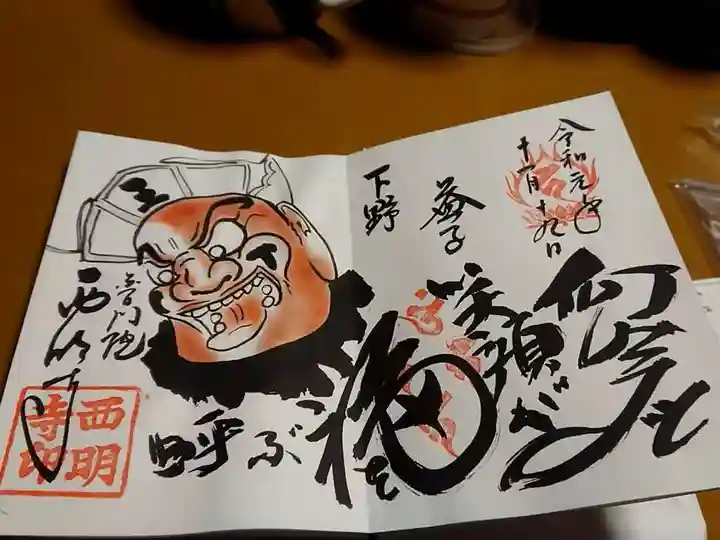 令和元年
十一月十九日
何学も
笑顔が
福を
呼ぶ
益子
下野
王
普門院
西明寺
西明
寺印